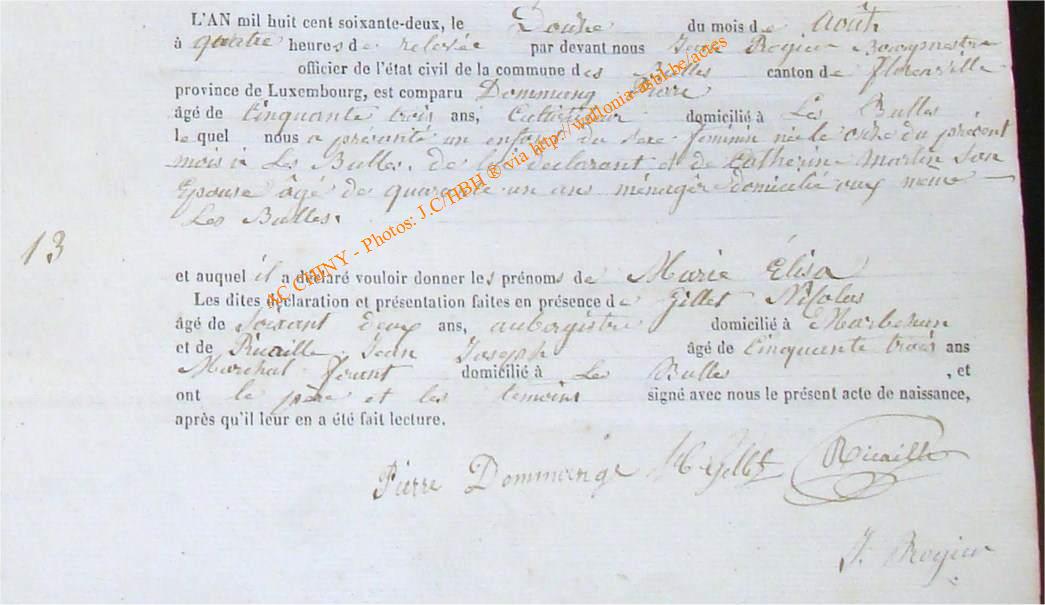 L'AN mil huit cent soixante-deux, le Douze du mois de Août
à quatre heures de relevée par devant nous Jean Rogier Bourgmestre
officier de l'état civil de la commune des Bulles canton de Florenville
province de Luxembourg, est comparu Dommang Pierre
âgé de Cinquante trois ans, Cultivateur domicilié à Les Bulles
le quel nous a présenté un enfant du sexe féminin née le onze du présent
mois à Les Bulles, de lui déclarant et de Catherine Martin son
Epouse âgé de quarante un ans ménager domicilié aux même
Les Bulles.
13
et auquel il a déclaré vouloir donner les prénoms de Marie Élisa
Les dites déclaration et présentation faites en présence de Gillet Nicolas
âgé de Soixant deux ans, aubergistre domicilié à Marbehan
et de Ricaille Jean Joseph âgé de Cinquante trois ans
Maréchal ferant domicilié à Les Bulles , et
ont le père et les temoins signé avec nous le présent acte de naissance,
après qu'il leur en a été fait lecture.
Pierre Dommange N Gillet Ricaille
J. Rogier
AC CHINY - Photos: J.C/HBH ® via http://wallonia-asbl.be/actes